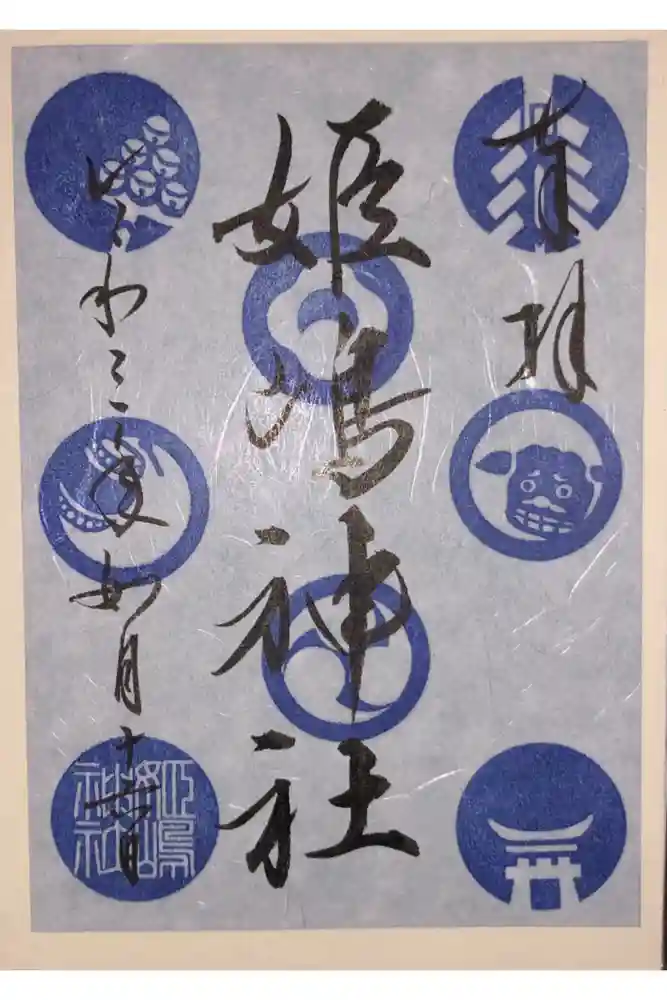 奉拝
姫嶋神社
令和三年如月十日
姫嶋神社